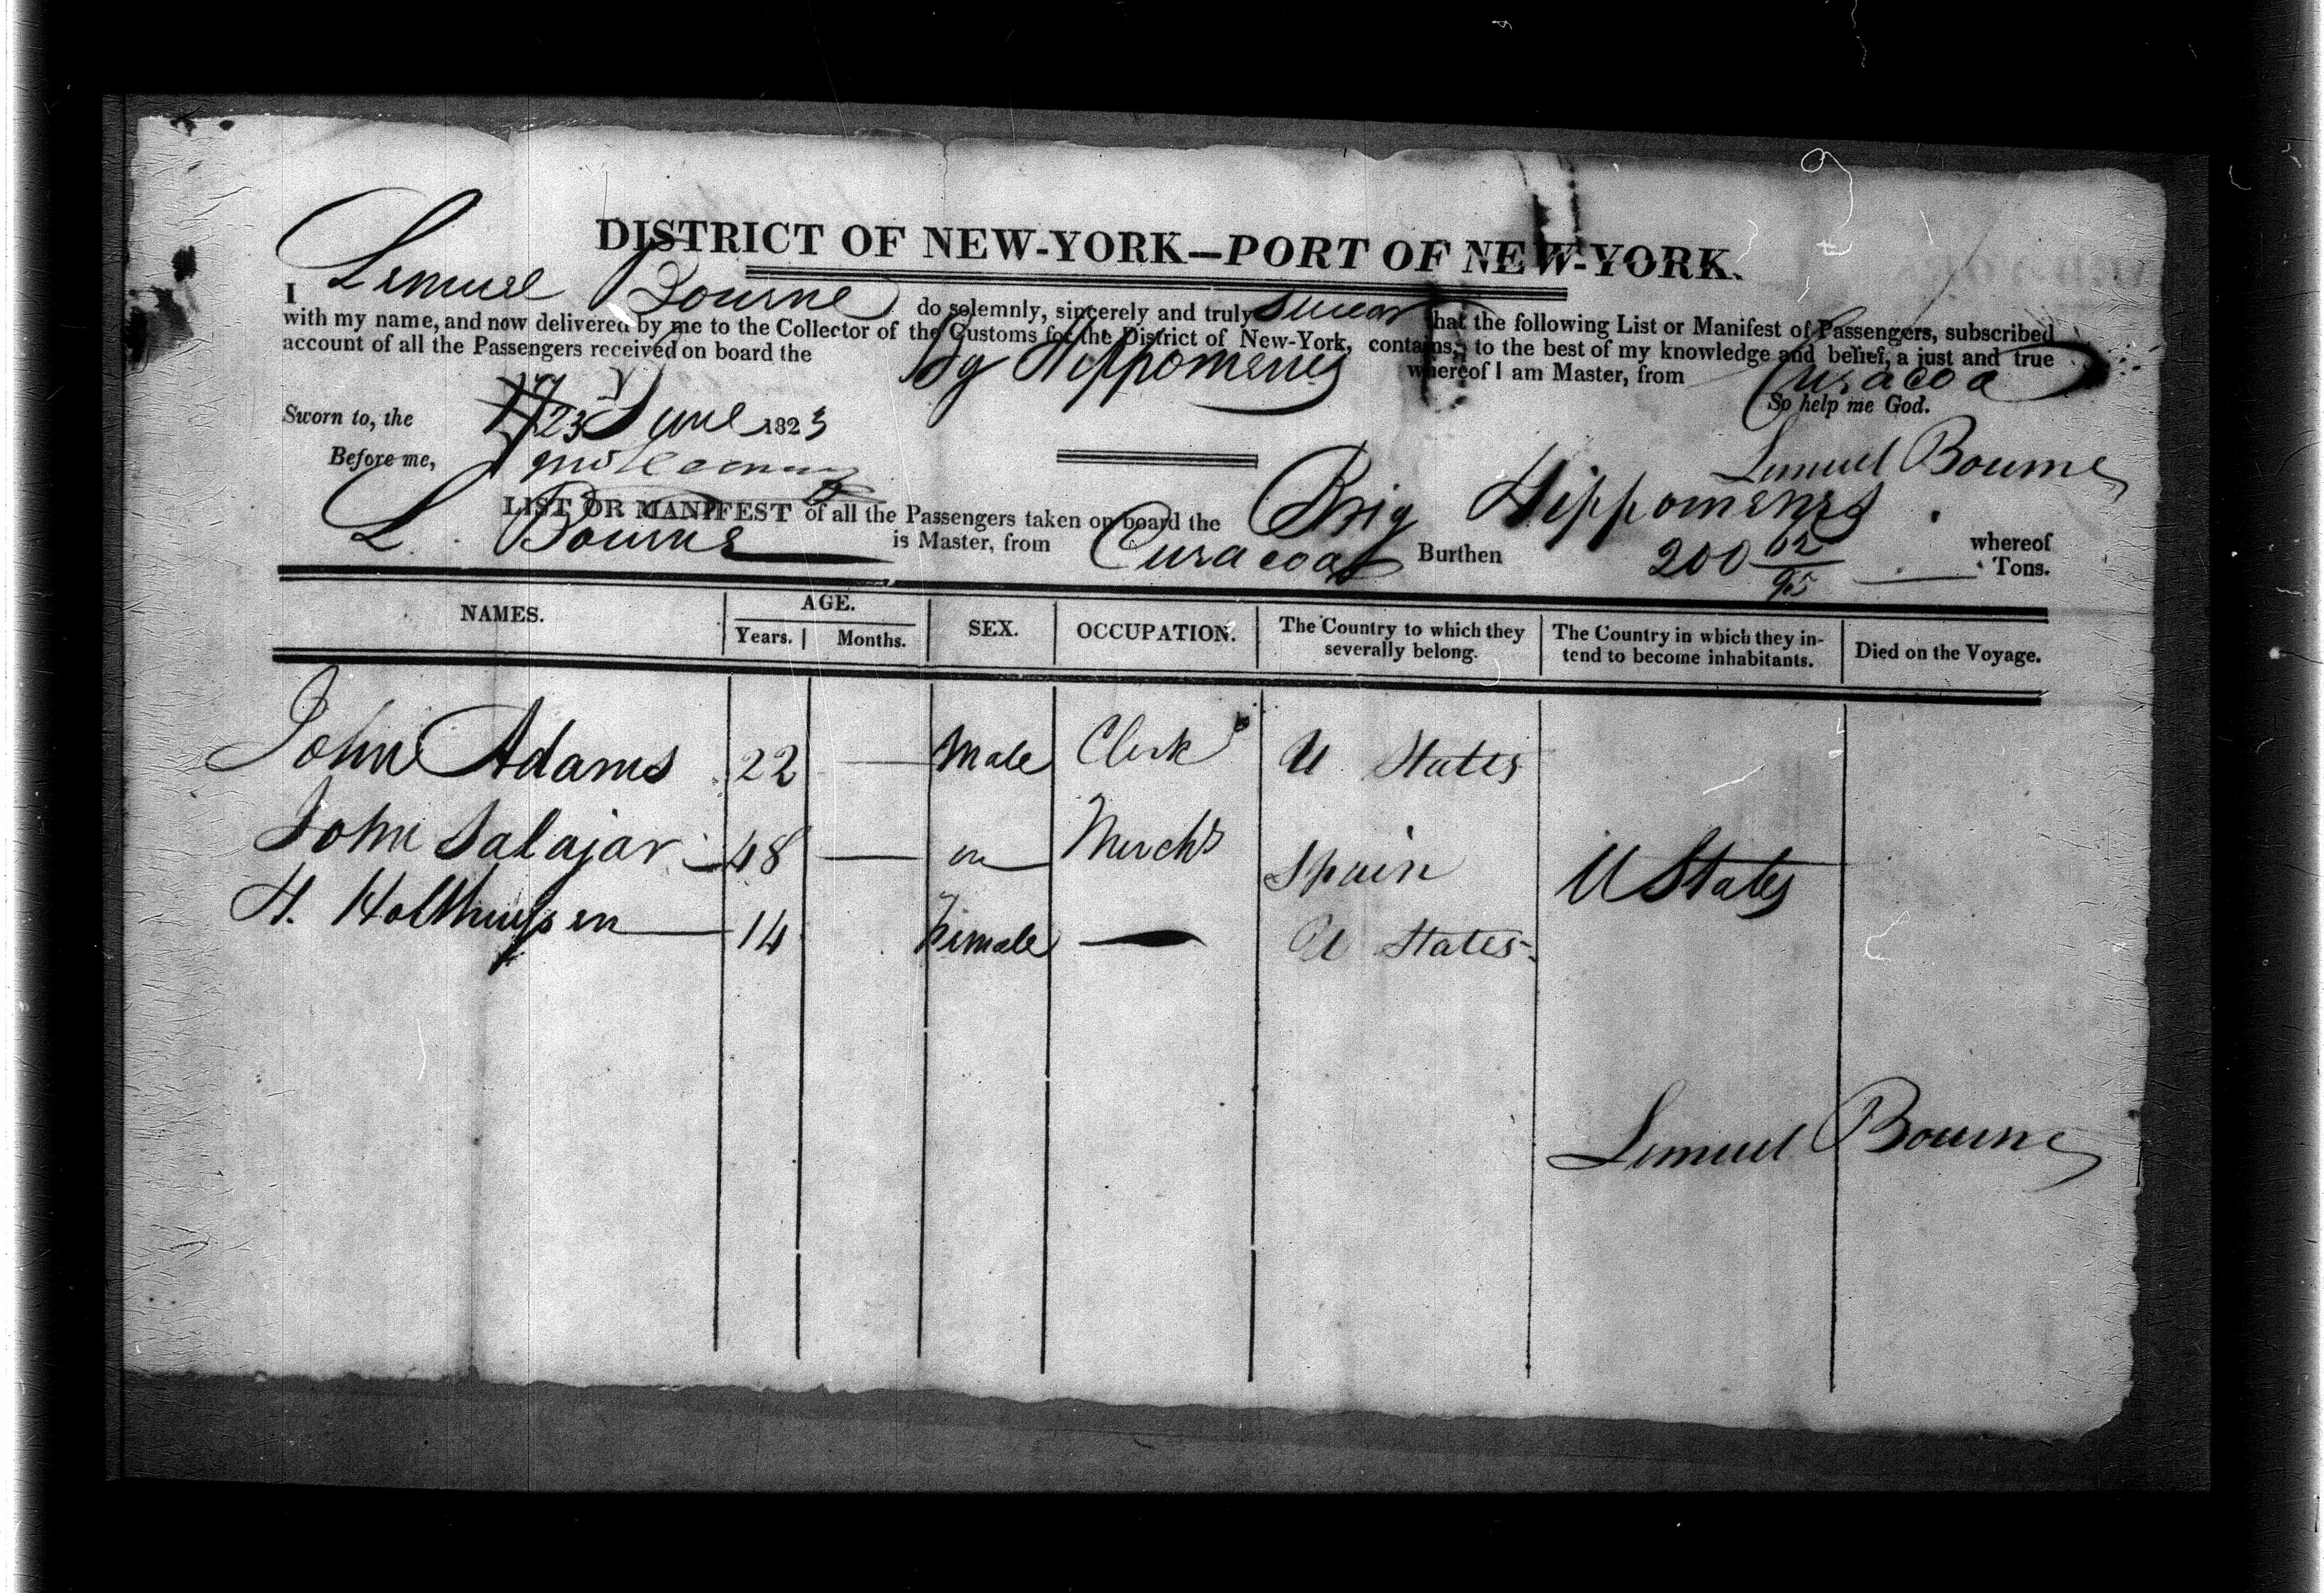 DISTRICT OF NEW-YORK—PORT OF NEW-YORK.
I Lemuel Bourne do solemnly, sincerely and truly swear that the following List or Manifest of Passengers, subscribed
with my name, and now delivered by me to the Collector of the Customs for the District of New-York, contains, to the best of my knowledge and belief, a just and true
account of all the Passengers received on board the Bg Hippomenes whereof I am Master, from Curacoa
So help me God.
Sworn to, the 23 June 1823
Before me,
Lemuel Bourne
LIST OR MANIFEST of all the Passengers taken on board the Brig Hippomenes whereof
L. Bourne is Master, from Curacoa Burthen 200 62/95 Tons.
NAMES. AGE. SEX. OCCUPATION. The Country to which they severally belong. The Country in which they intend to become inhabitants. Died on the Voyage.
Years. Months.
John Adams 22 — Male Clerk U States
John Salajar 48 — Mercht Spain U States
H. Holthuysen 14 Female — U States
Lemuel Bourne